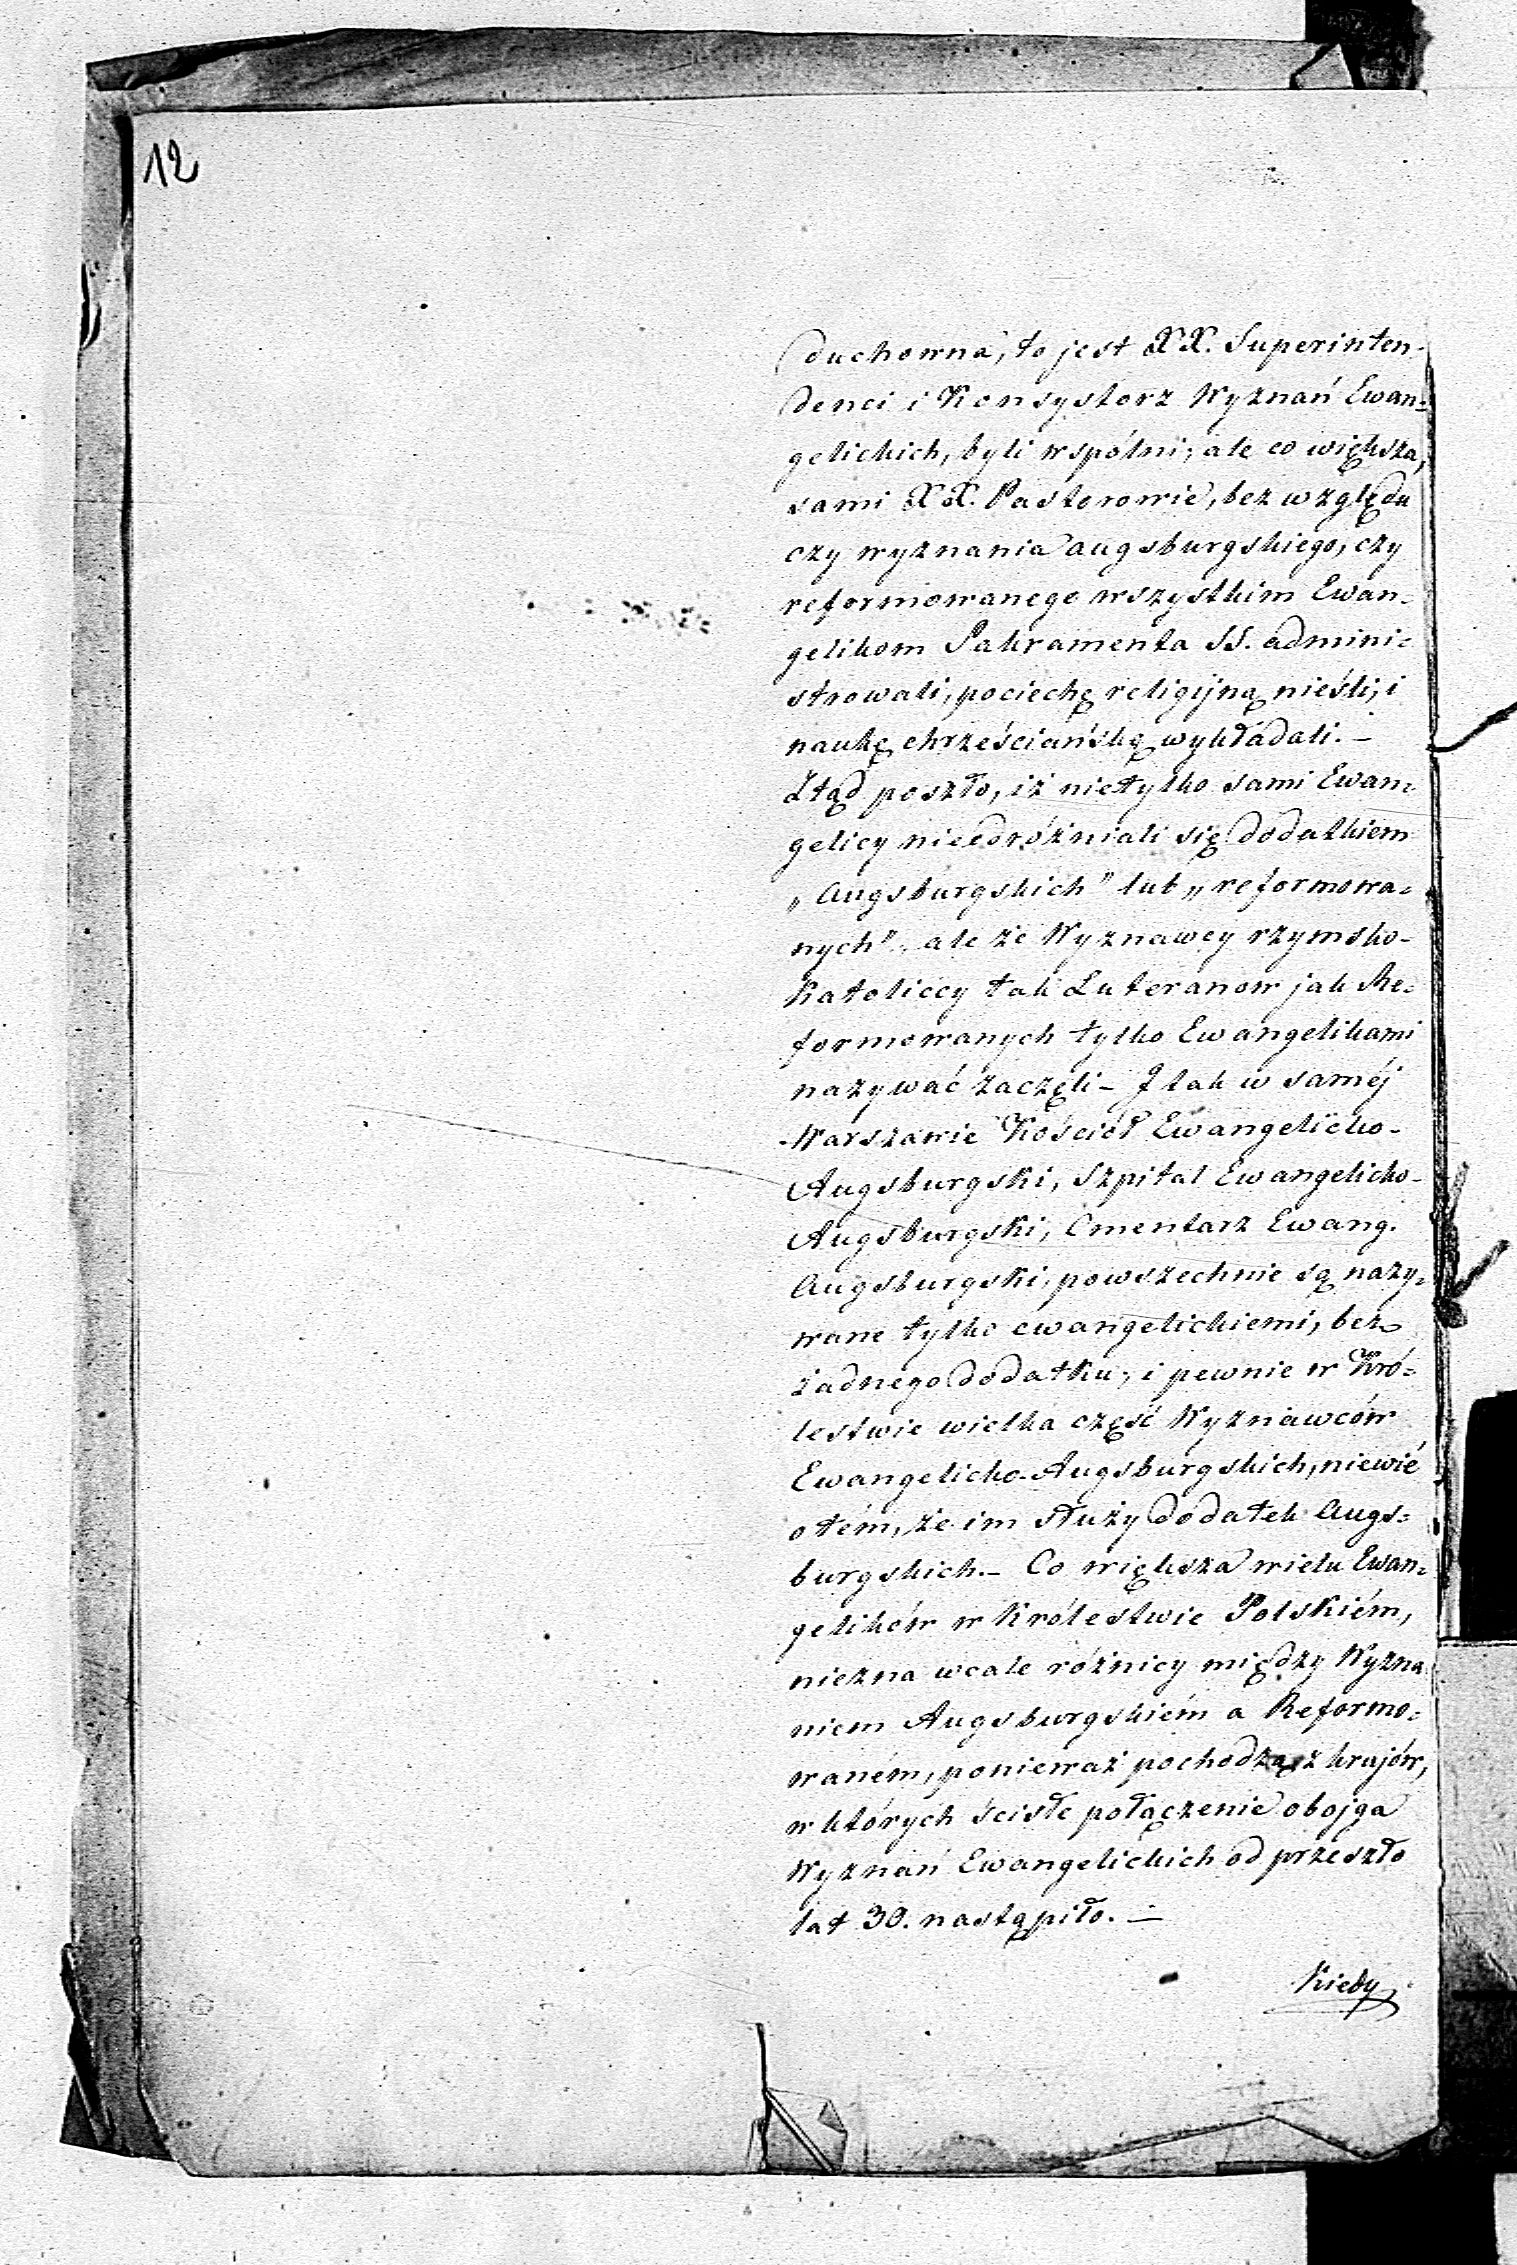 12
duchowna, to jest XX. Superinten-
denci i Konsystorz Wyznań Ewan=
gelickich, byli wspólni; ale co większa,
sami XX. Pastorowie, bez względu
czy wyznania augsburgskiego, czy
reformowanego wszystkim Ewan-
gelikom Sakramenta SS. admini=
strowali, pociechę religijną nieśli, i
naukę chrześciańską wykładali. —
Ztąd poszło, iż nietylko sami Ewan=
gelicy nieodróżniali się dodatkiem
„Augsburgskich" lub „reformowa=
nych", ale że Wyznawcy rzymsko-
Katoliccy tak Luteranow jak Re=
formowanych tylko Ewangelikami
nazywać zaczęli — I tak w saméj
Warszawie Kościół Ewangelicko-
Augsburgski, Szpital Ewangelicko-
Augsburgski, Cmentarz Ewang.
Augsburgski, powszechnie są nazy=
wane tylko ewangelickiemi, bez
żadnego dodatku; i pewnie w Kró=
lestwie wielka część Wyznawców
Ewangelicko-Augsburgskich, niewié
o tém, że im służy dodatek Augs=
burgskich. — Co większa wielu Ewan=
gelików w Królestwie Polskiém,
niezna wcale różnicy między Wyzna
niem Augsburgskiém a Reformo=
waném, ponieważ pochodzą z krajów,
w których ścisłe połączenie obojga
Wyznań Ewangelickich od przeszło
lat 30. nastąpiło. —
Kiedy